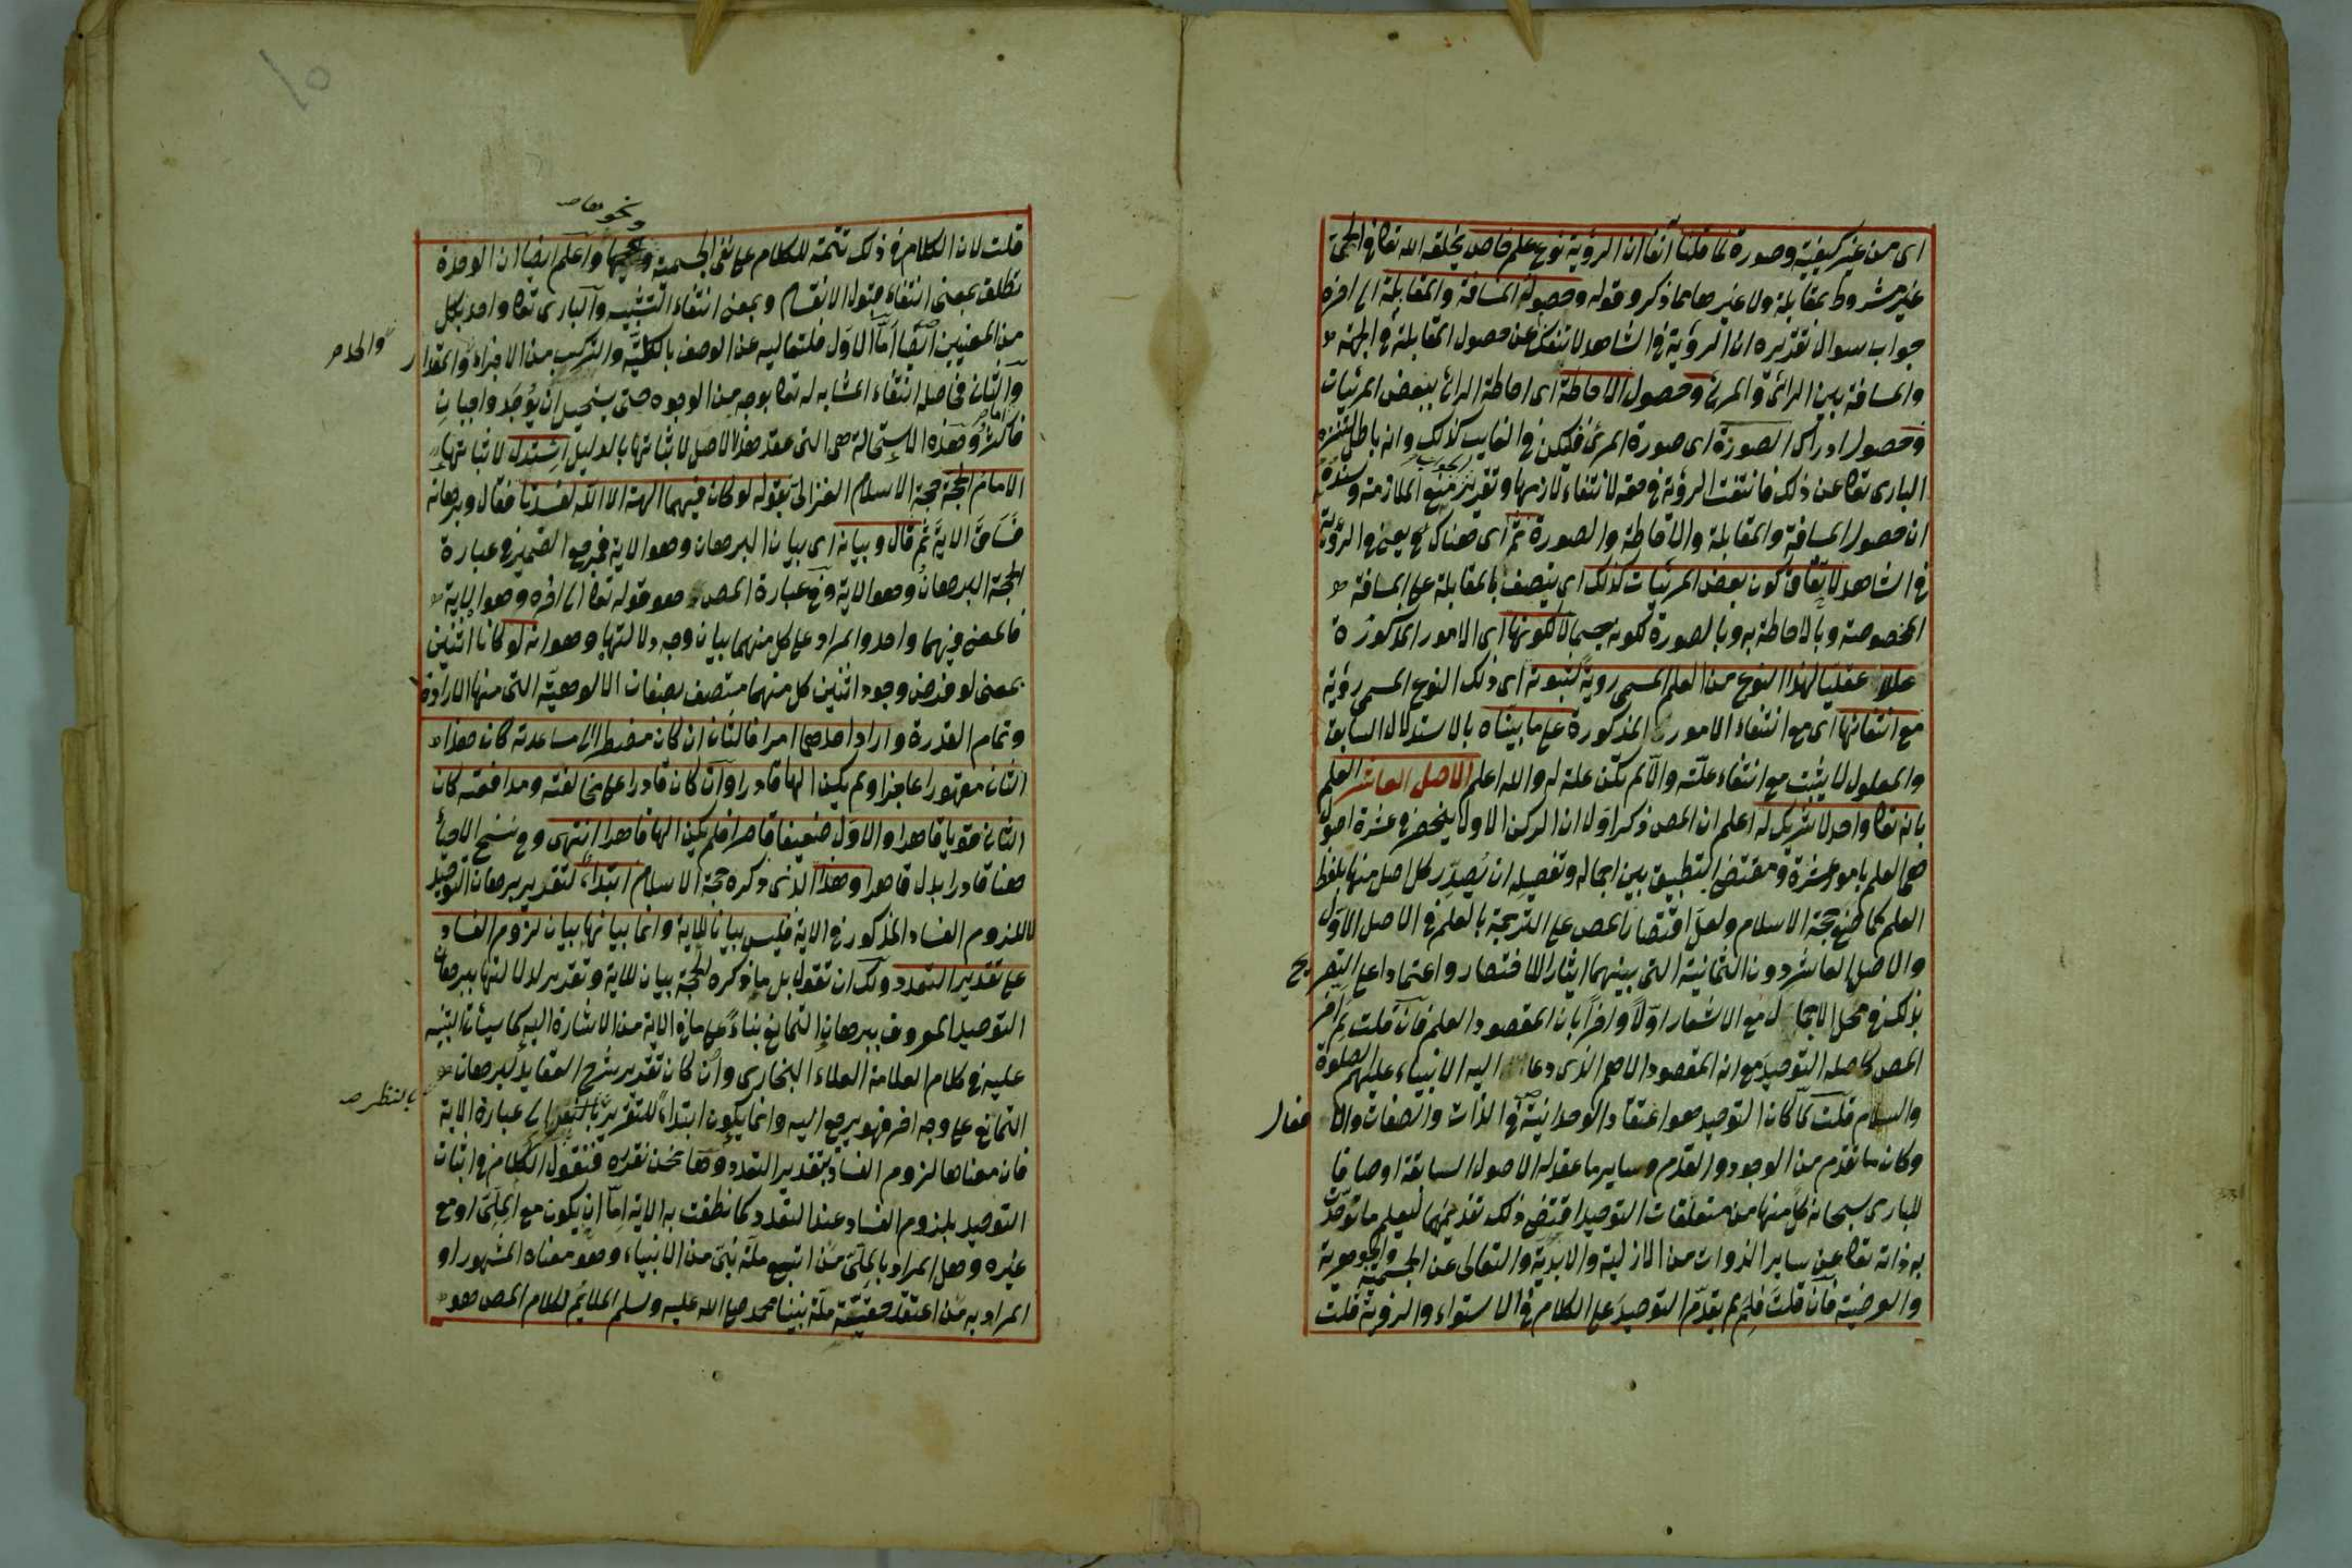 اى من غير كيفية وصورة لما قلنا آنفا ان الرؤية نوع علم خاص يخلقه الله تعا فى الحى
غير مشروط بمقابلة ولا غيرها مما ذكر وقوله وحصول المسافة والمقابلة الى اخره
جواب سوال تقديره ان الرؤية فى الشاهد لا تنفك عن حصول المقابلة فى الجهة
والمسافة بين الرائى والمرئ وحصول الاحاطة اى احاطة الرائ ببعض المرئيات
وحصول ادراك الصورة اى صورة المرئ فليكن فى الغايب كذلك وانه باطل لتنزه
البارى تعا عن ذلك فانتفت الرؤية فى حقه لانتفاء لازمها وتقرير الجواب منع الملازمة وسنده
ان حصول المسافة والمقابلة والاحاطة والصورة ثم اى هناك يعنى فى الرؤية
فى الشاهد لاتفاق كون بعض المرئيات كذلك اى يتصف بالمقابلة على المسافة
المخصوصة وبالاحاطة به وبالصورة لكونه جسما لا لكونها اى الامور المذكورة
علة عقليا لهذا النوع من العلم المسمى روية لثبوته اى ذلك النوع المسمى رؤية
مع انتفائها اى مع انتفاء الامور المذكورة على ما بيناه بالاستدلال السابق
والمعلول لا يثبت مع انتفاء علته والا لم تكن علة له والله اعلم الاصل العاشر العلم
بانه تعا واحد لا شريك له اعلم ان المص ذكر اولا ان الركن الاول ينحصر فى عشرة اصول
هى العلم بامور عشرة ومقتضى التطبيق بين اجماله وتفصيله ان يصدّر كل اصل منها بلفظ
العلم كما صنع حجة الاسلام ولعل اقتصار المص على الترجمة بالعلم فى الاصل الاول
والاصل العاشر دون الثمانية التى بينهما ايثارا للاختصار واعتمادا على التصريح
بذلك فى محل الاجمال مع الاشعار اوّلا واخرًا بان المقصود العلم فان قلت لم اخر
المص كاصله التوحيد مع انه المقصود الاهم الذى دعا اليه الانبياء عليهم الصلوة
والسلام قلت لما كان التوحيد هو اعتقاد الوحدانية فى الذات والصفات والافعال
وكان ما تقدم من الوجود والقدم وساير ما عقد له الاصول السابقة اوصافا
للبارى سبحانه كل منها من متعلقات التوحيد اقتضى ذلك تقديمها ليعلم ما توحدت
به ذاته تعا عن ساير الذوات من الازلية والابدية والتعالى عن الجسمية والجوهرية
والعرضية فان قلت فلم لم يقدّم التوحيد على الكلام فى الاستواء والرؤية قلت
قلت لان الكلام فى ذلك تتمة للكلام على نفى الجسمية ونحوها واعلم ايضا ان الوحدة
تطلق بمعنى انتفاء قبول الانقسام وبمعنى انتفاء التشبيه والبارى تعا واحد بكل
من المعنيين ايضا اما الاول فلتعاليه عن الوصف بالكلية والتركيب من الاجزاء والحد والمقدار
والثانى فحاصله انتفاء المشابه له تعا بوجه من الوجوه حتى يستحيل ان يوجد واجبان
فاكثر وهذه الاستحالة هى التى عقد هذا الاصل لاثباتها بالدليل استدل لاثباتها
الامام الحجة حجة الاسلام الغزالى بقوله لو كان فيهما الهة الا الله لفسدتا فقال وبرهانه
فساق الاية ثم قال وبيانه اى بيان البرهان وهو الاية فمرجع الضمير فى عبارة
الحجة البرهان وهو الاية وفى عبارة المص هو قوله تعا الى اخره وهو الاية
فالمعنى فيهما واحد والمراد على كل منهما بيان وجه دلالتها وهو انه لو كانا اثنين
بمعنى لو فرض وجود اثنين كل منهما متصف بصفات الالوهية التى منها الارادة
وتمام القدرة واراد احدهما امرا فالثانى ان كان مضطرا الى مساعدته كان هذا
الثانى مقهورا عاجزا ولم يكن الها قادرا وان كان قادرا على مخالفته ومدافعته كان
الثانى قويا قاهرا والاول ضعيفا قاصرا فلم يكن الها قاهرا انتهى وفى نسخ الاحيا
هنا قادرا بدل قاهرا وهذا الذى ذكره حجة الاسلام ابتداءً لتقرير برهان التوحيد
لا للزوم الفساد المذكور فى الاية فليس بيانا للاية وانما بيانها بيان لزوم الفساد
على تقدير التعدد ولك ان تقول بل ما ذكره الحجة بيان للاية وتقرير لدلالتها ببرهان
التوحيد المعروف ببرهان التمانع بناءً على ما فى الاية من الاشارة اليه كما سيأتى التنبيه
عليه فى كلام العلامة العلاء البخارى وان كان تقدير شرح العقايد لبرهان
التمانع على وجه اخر فهو يرجع اليه وانما يكون ابتداءً للتقرير بالنظر الى عبارة الاية
فان معناها لزوم الفساد بتقدير التعدد وها نحن نقدره فنقول الكلام فى اثبات
التوحيد بلزوم الفساد عند التعدد كما نطقت به الاية اما ان يكون مع الملّى او مع
غيره وهل المراد بالملّى من اتبع ملة نبى من الانبياء وهو معناه المشهور او
المراد به من اعتقد حقيقة ملة نبينا محمد صلى الله عليه وسلم الملائم لكلام المص هو